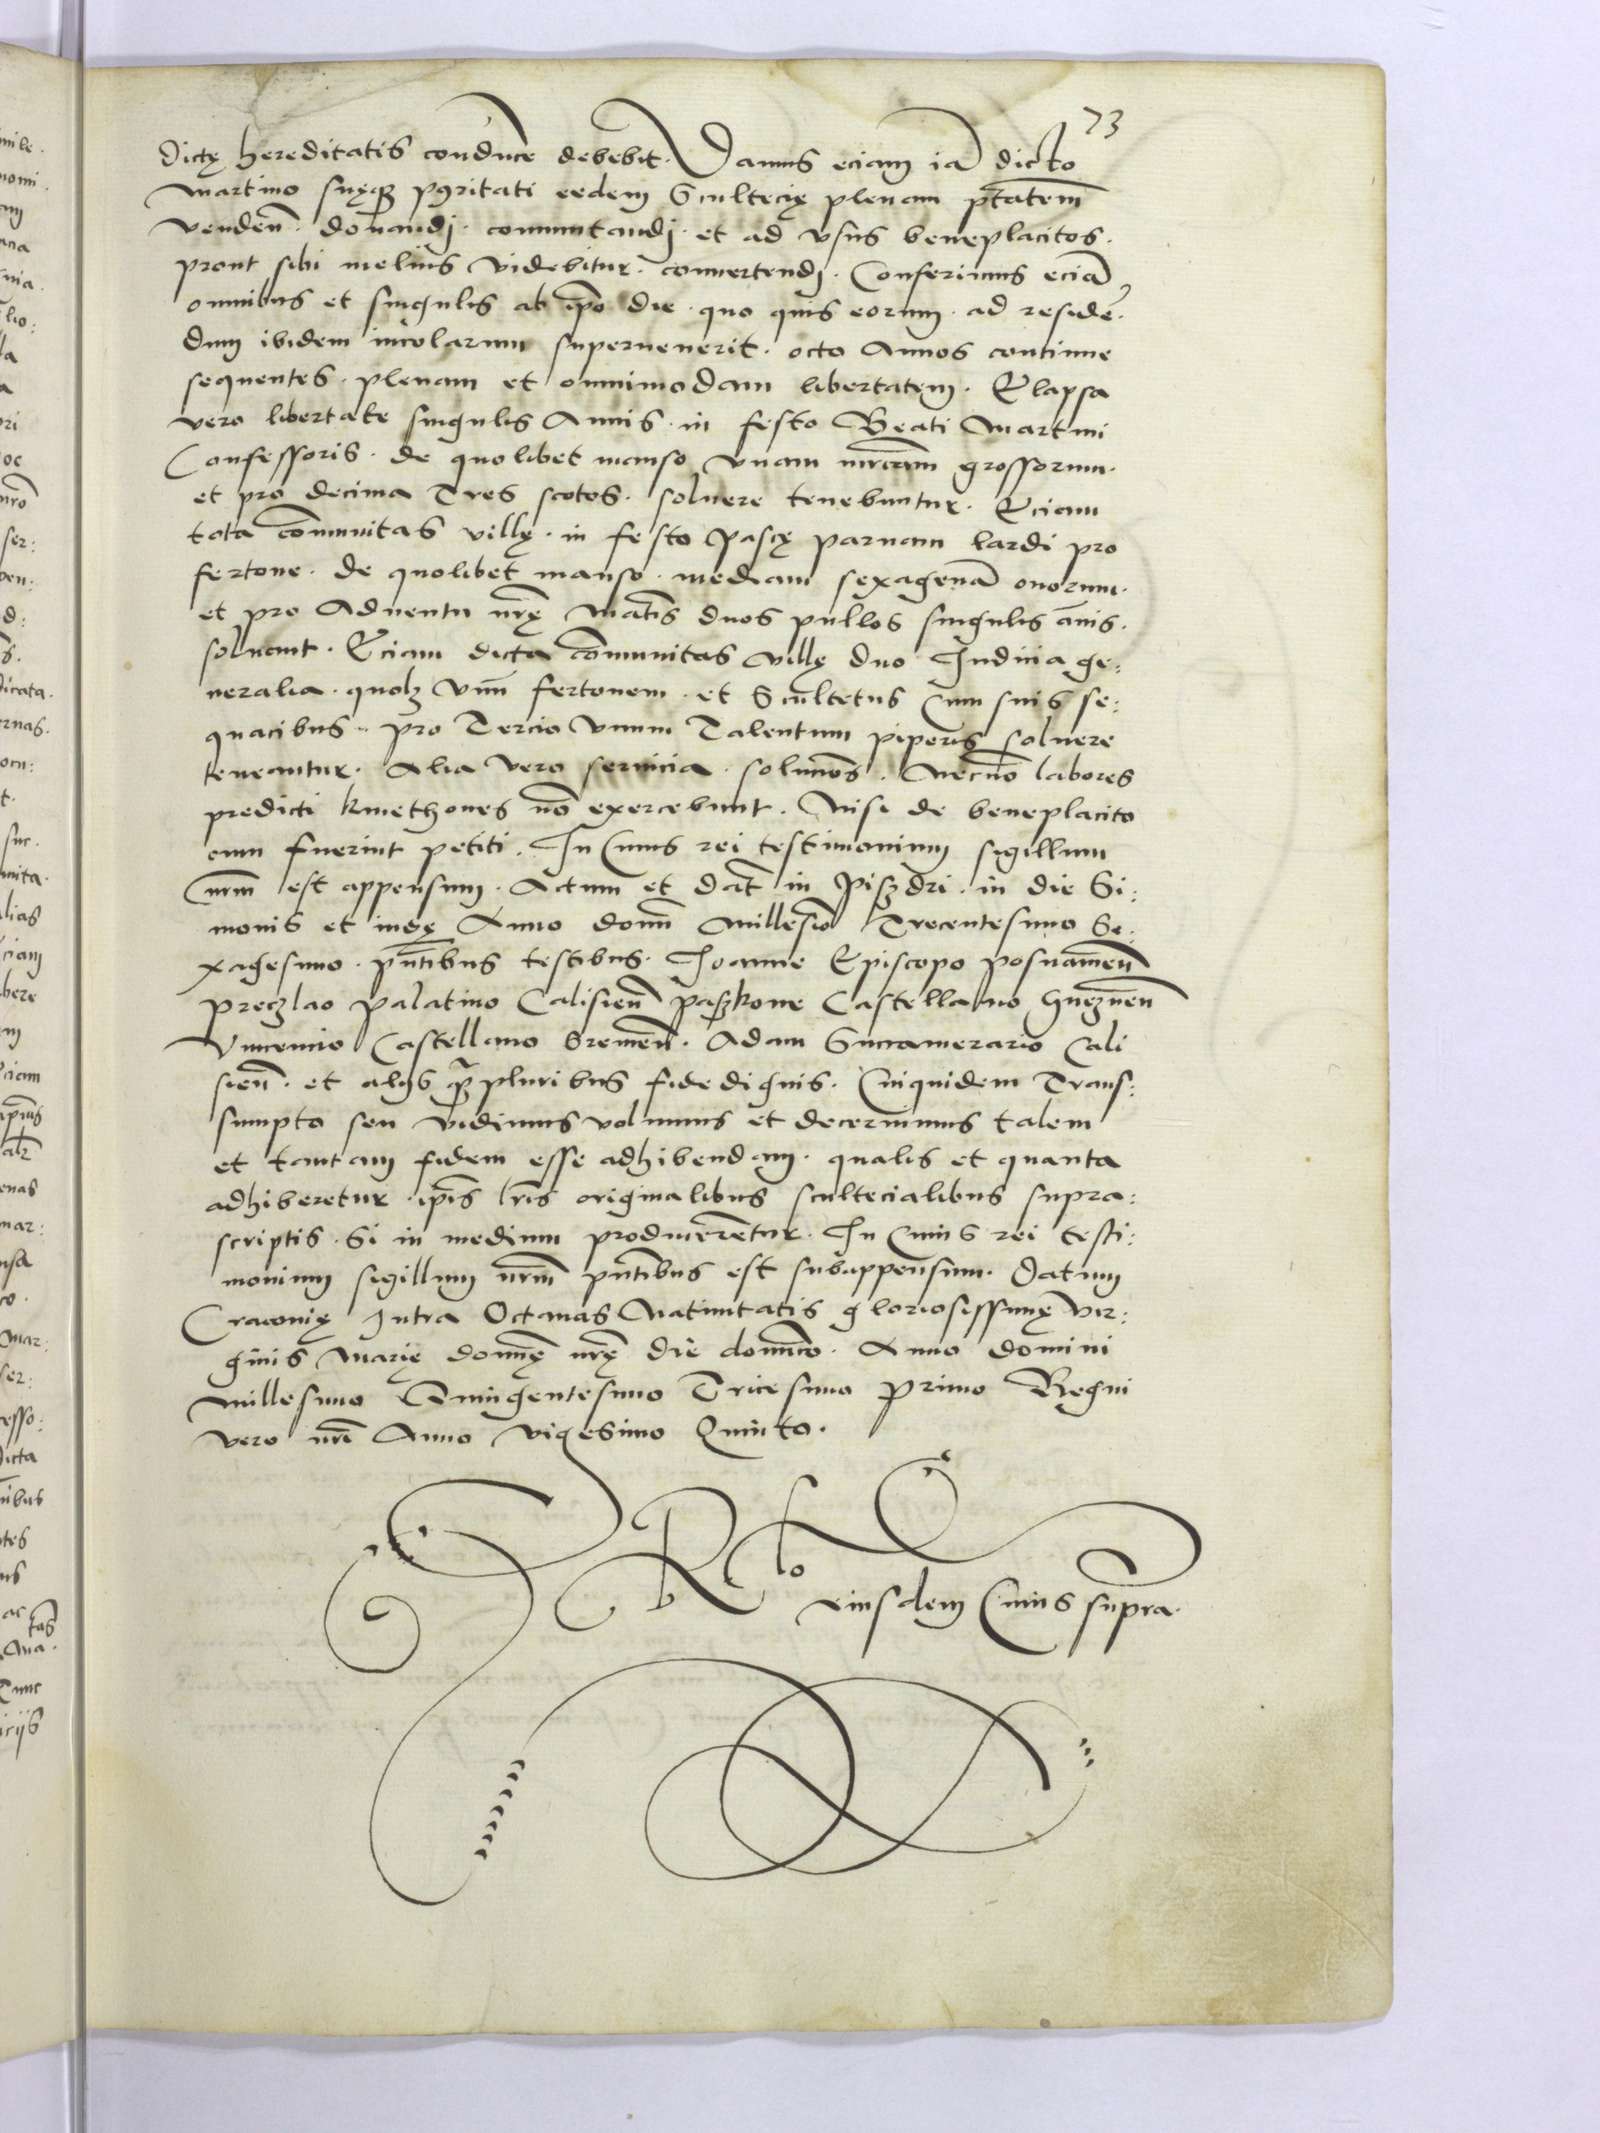 73
dictę hereditatis conducẽ debebit. Damus eciam iã dicto
Martino suęq̃ p9ritati eedem Scultecię plenam ptãtem̃
vendeñ. donandj. commutandj. et ad vsus beneplacitos.
prout sibi melius videbitur. conuertendj. Conferimus eciã
omnibus et singulis ab ip̃o die. quo quis eorum. ad residẽ.
dum ibidem incolarum superuenerit. octo Annos continue
sequentes. plenam et omnimodam libertatem. Elapsa
vero libertate singulis Annis. in festo Beati Martini
Confessoris. de quolibet manso vnam mrcam grossorum.
et pro decima Tres scotos. soluere tenebuntur. Eciam
tota cõmunitas villę. in festo Pascę parnam lardi pro
fertone. de quolibet manso. mediam sexagenã ouorum.
et pro Aduentu nr̃ę Matĩs duos pullos singulis ãnis.
soluant. Eciam dicta cõmunitas villę duo Judicia ge:
neralia. quolz vnũ fertonem. et Scultetus cum suis se:
quacibus. pro Tercio vnum Talentum piperis soluere
teneantur. Alia vero seruicia. solucioñs. Necnõ labores
predicti kmethones nõ exercebunt. Nisi de beneplacito
eum fuerint petiti. In Cuius rei testimonium sigillum
nrm̃ est appensum. Actum et dat̃ in Piszdri. in die Si:
monis et iudę Anno domñ Millesiõ Trecentesimo Se:
xagesimo. pñtibus testibus. Joanne Episcopo Posnamieñ
preczlao palatino Calisieñ paszkone Castellano Gnezneñ
Vincencio Castellano Sremeñ. Adam Succamerario Cali
sieñ. et alijs q̃ pluribus fidedignis. Cuiquidem Trans:
sumpto seu vidimus volumus et decernimus talem
et tantam fidem esse adhibendam. qualis et quanta
adhiberetur. ip̃is lr̃is originalibus scultecialibus supra:
scriptis. Si in medium producerentur. In Cuius rei testi:
monium sigillum nrm̃ pñtibus est subappensum. Datum
Cracovię Intra Octauas Natiuitatis gloriosissimę vir:
ginis Marię domĩę nr̃ę die domĩco. Anno domini
Millesimo Quingentesimo Tricesimo Primo Regni
vero nr̃i Anno vigesimo Quinto.
Rlo
eiusdem Cuius supra.